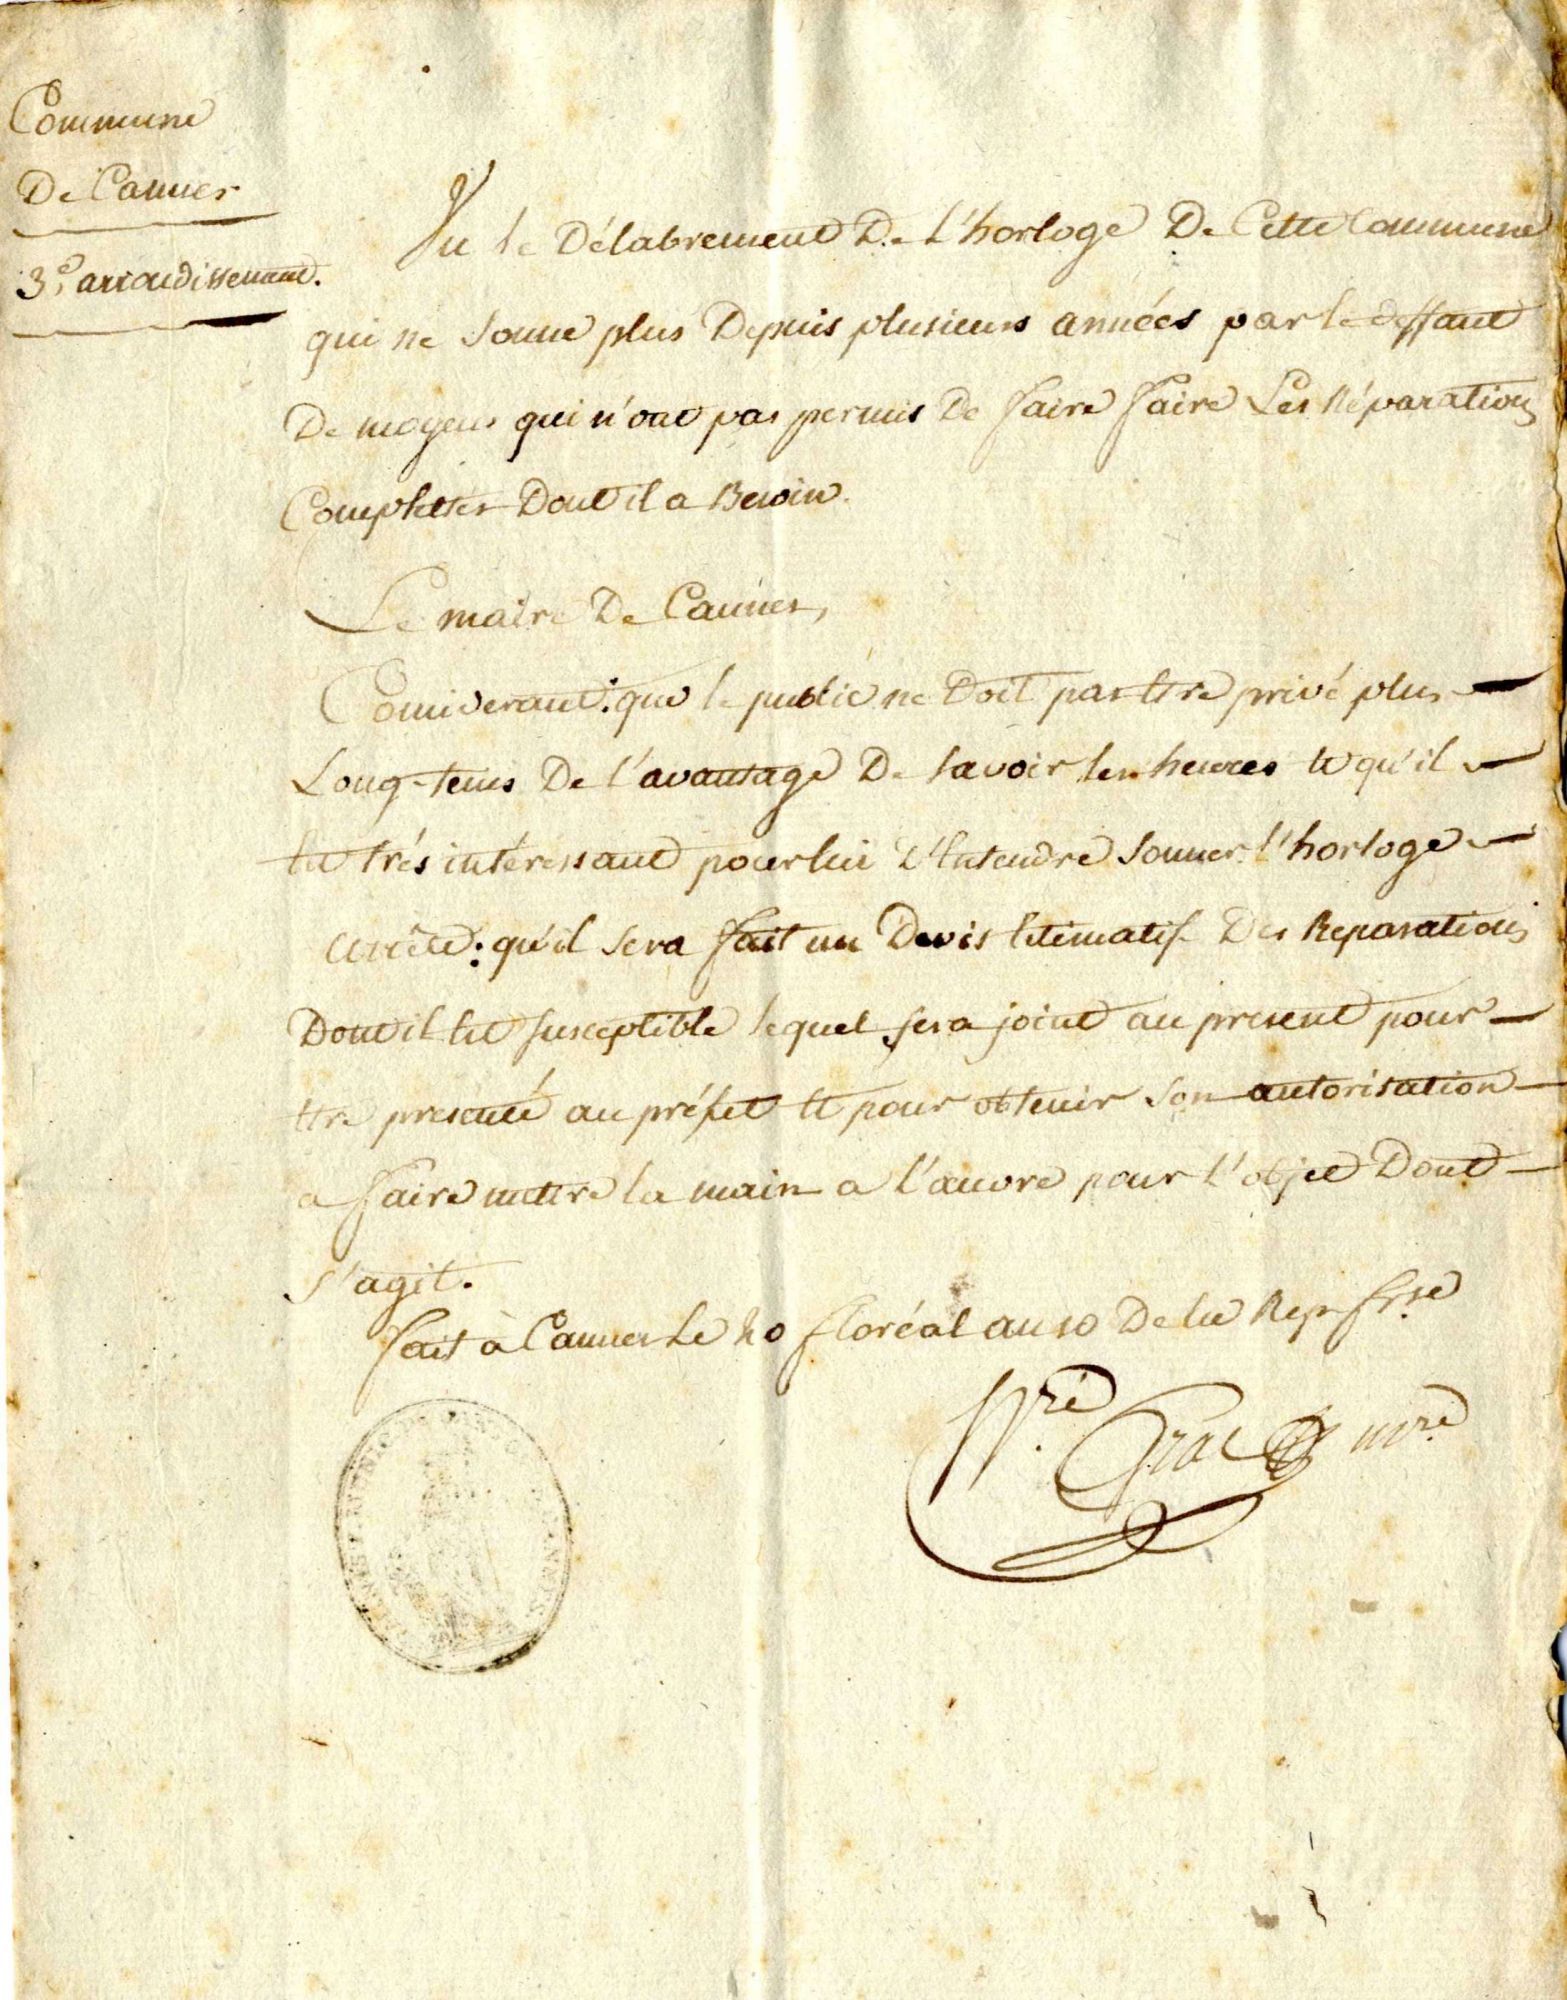 Commune
De Cannes
3.e arrondissement.
Vu le Délabrement De L'horloge De Cette Commune
qui ne sonne plus Depuis plusieurs années par le deffaut
De moyens qui n'ont pas permis De faire faire Les Réparations
Complettes Dont il a Besoin.
Le maire De Cannes,
Considerant: que le public ne Doit pas Etre privé plus
Long-tems De l'avantage De savoir les heures et qu'il
Est très intéressant pour lui d'Entendre sonner l'horloge
arrête: qu'il sera fait un Devis Estimatif Des Reparations
Dont il Est susceptible lequel sera joint au present pour
Etre presenté au préfet et pour obtenir son autorisation
a faire mettre la main a l'œuvre pour l'objet Dont
s'agit.
fait à Cannes Le 20 floréal an 10 De la Rep. frse
h.ré Gras mre.